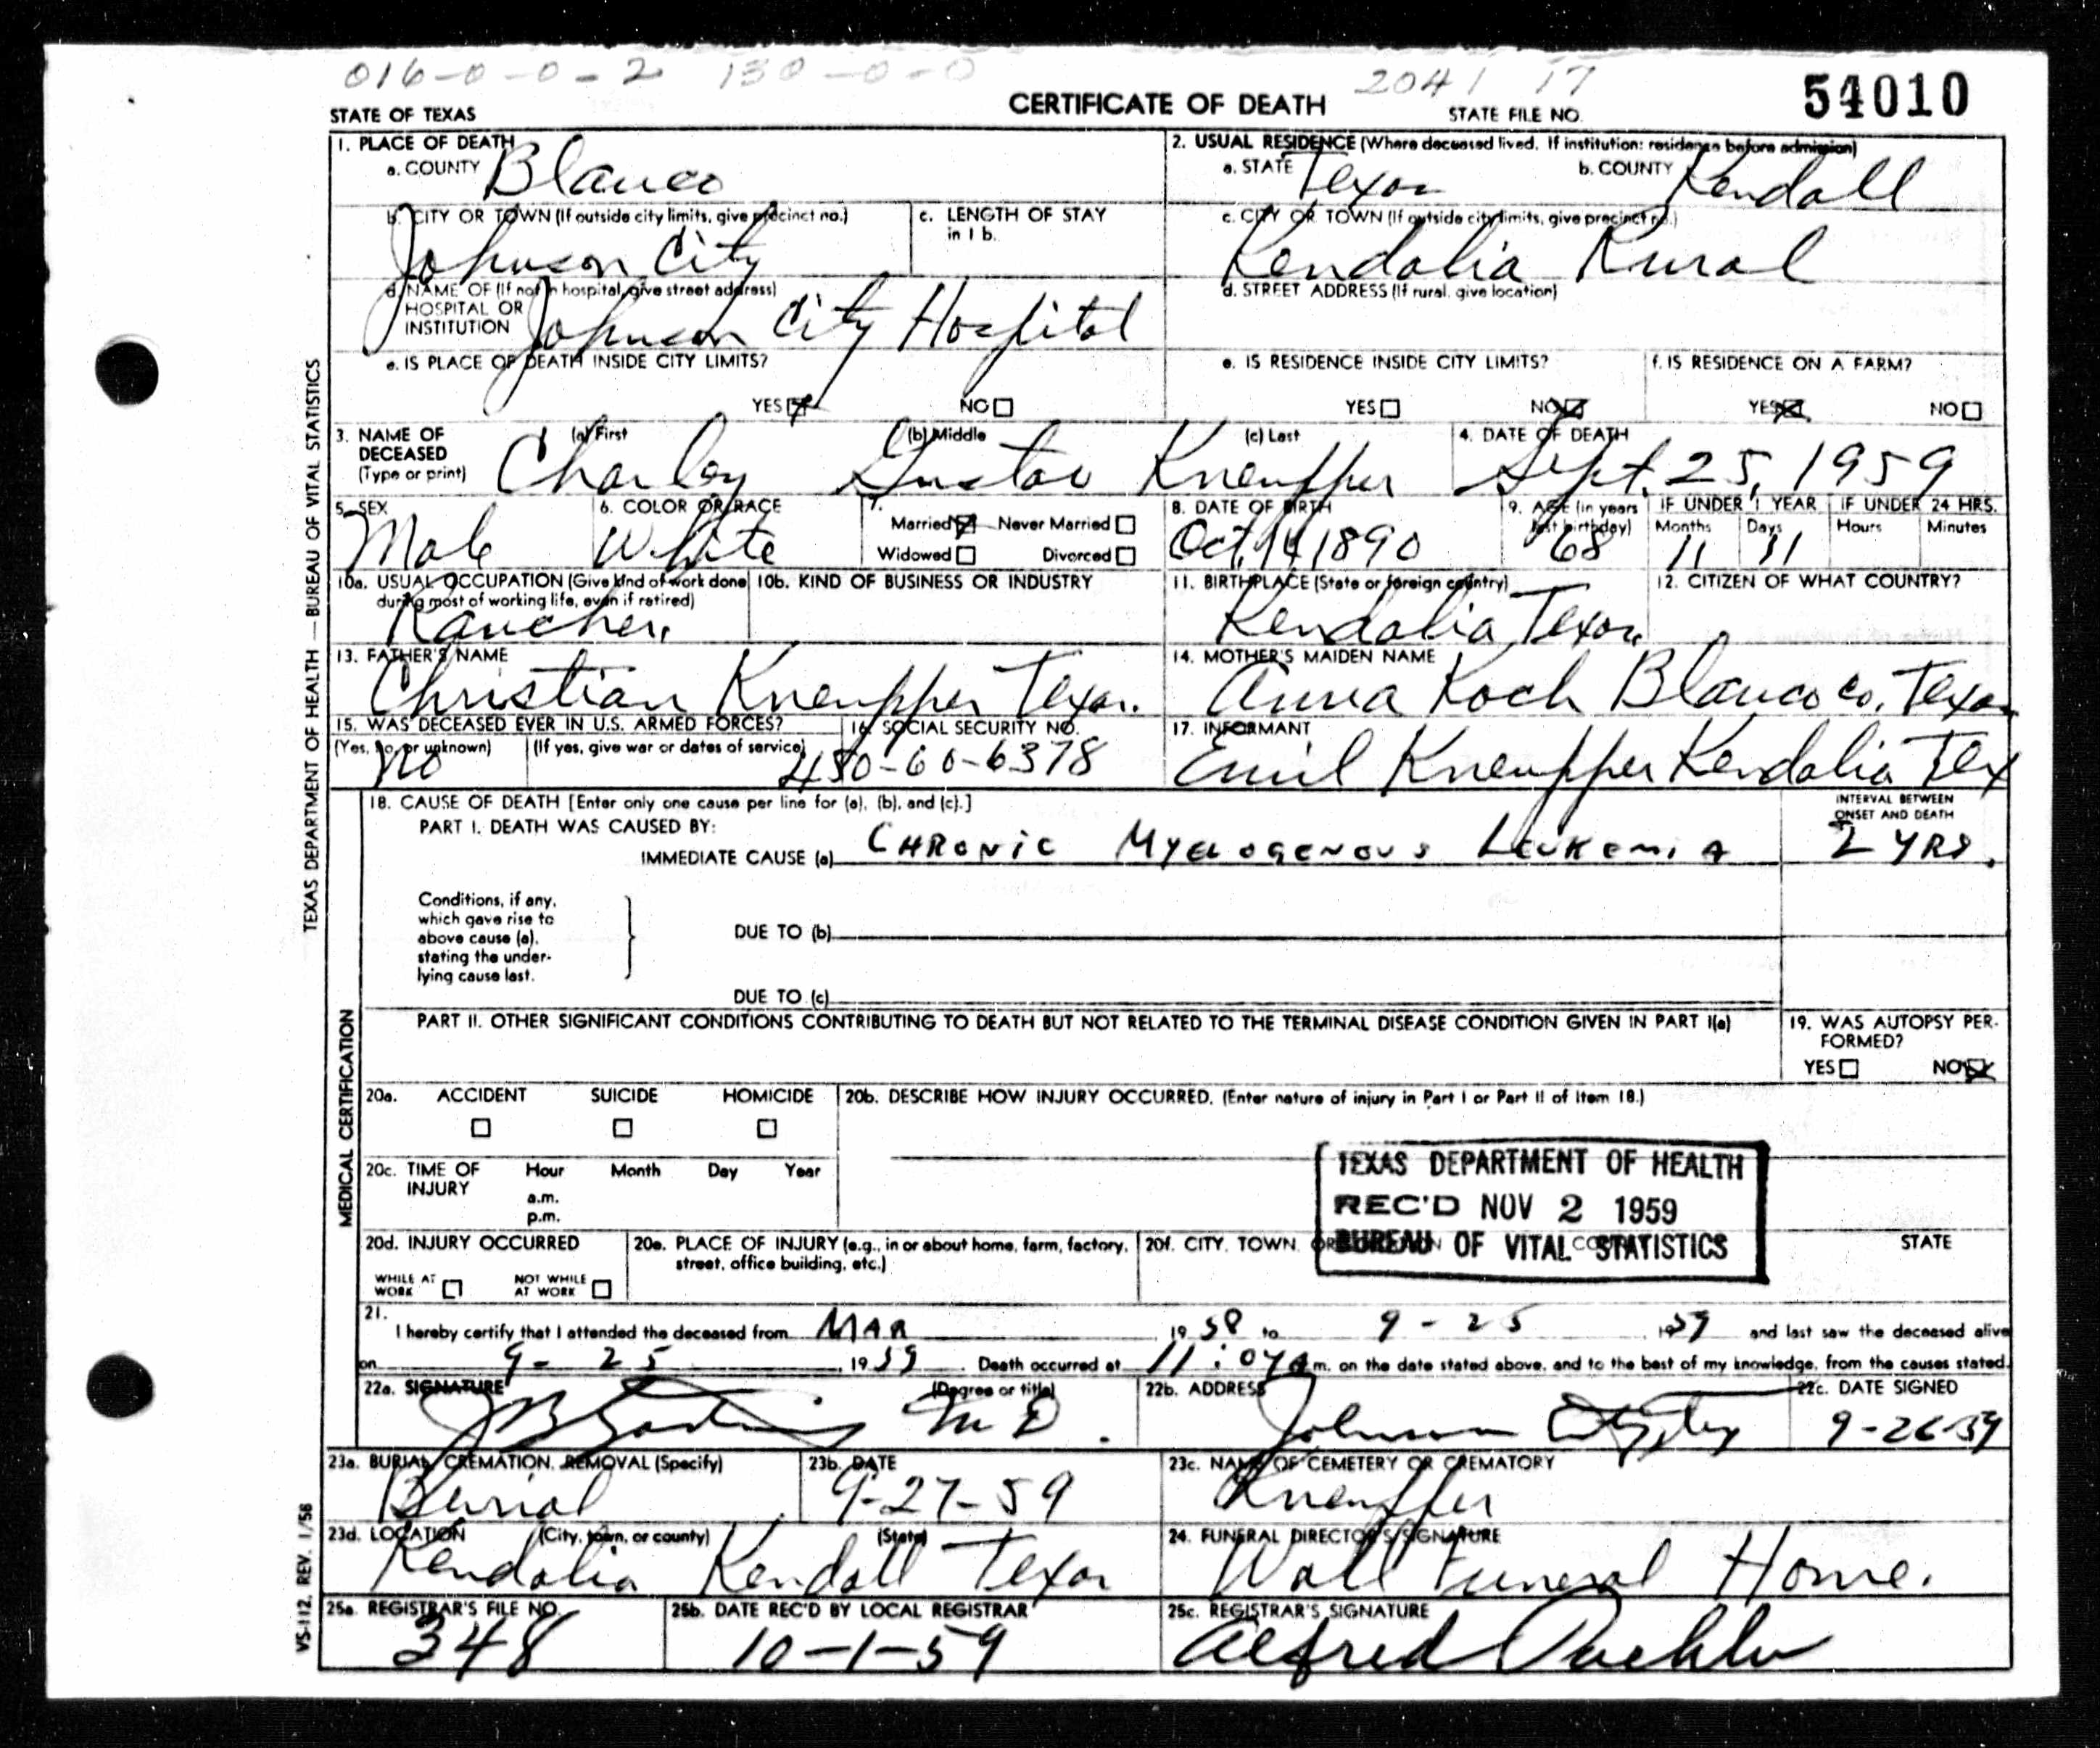 016-0-0-2 130-0-0 2041 17
54010
STATE OF TEXAS CERTIFICATE OF DEATH STATE FILE NO.
1. PLACE OF DEATH
a. COUNTY Blanco
2. USUAL RESIDENCE (Where deceased lived. If institution: residence before admission)
a. STATE Texas b. COUNTY Kendall
b. CITY OR TOWN (If outside city limits, give precinct no.)
Johnson City
c. LENGTH OF STAY
in 1 b.
c. CITY OR TOWN (If outside city limits, give precinct no.)
Kendalia Rural
d. NAME OF (If not in hospital, give street address)
HOSPITAL OR
INSTITUTION Johnson City Hospital
d. STREET ADDRESS (If rural, give location)
e. IS PLACE OF DEATH INSIDE CITY LIMITS?
YES NO
e. IS RESIDENCE INSIDE CITY LIMITS?
YES NO
f. IS RESIDENCE ON A FARM?
YES NO
3. NAME OF
DECEASED
(Type or print)
(a) First (b) Middle (c) Last
Charley Gustav Kneupper
4. DATE OF DEATH
Sept. 25, 1959
5. SEX
Male
6. COLOR OR RACE
White
7.
Married Never Married
Widowed Divorced
8. DATE OF BIRTH
Oct. 14 1890
9. AGE (in years
last birthday)
68
IF UNDER 1 YEAR
Months Days
11 11
IF UNDER 24 HRS.
Hours Minutes
10a. USUAL OCCUPATION (Give kind of work done
during most of working life, even if retired)
Rancher.
10b. KIND OF BUSINESS OR INDUSTRY
11. BIRTHPLACE (State or foreign country)
Kendalia, Texas.
12. CITIZEN OF WHAT COUNTRY?
13. FATHER'S NAME
Christian Kneupper Texas.
14. MOTHER'S MAIDEN NAME
Anna Koch Blanco co. Texas
15. WAS DECEASED EVER IN U.S. ARMED FORCES?
(Yes, no, or unknown) (If yes, give war or dates of service)
No
16. SOCIAL SECURITY NO.
450-60-6378
17. INFORMANT
Emil Kneupper Kendalia Tex
18. CAUSE OF DEATH [Enter only one cause per line for (a), (b), and (c).]
PART I. DEATH WAS CAUSED BY:
IMMEDIATE CAUSE (a) CHRONIC MYELOGENOUS LEUKEMIA
INTERVAL BETWEEN
ONSET AND DEATH
2 YRS.
Conditions, if any,
which gave rise to
above cause (a),
stating the under-
lying cause last.
DUE TO (b)
DUE TO (c)
PART II. OTHER SIGNIFICANT CONDITIONS CONTRIBUTING TO DEATH BUT NOT RELATED TO THE TERMINAL DISEASE CONDITION GIVEN IN PART I(a)
19. WAS AUTOPSY PER-
FORMED?
YES NO
20a. ACCIDENT SUICIDE HOMICIDE
20b. DESCRIBE HOW INJURY OCCURRED. (Enter nature of injury in Part I or Part II of Item 18.)
20c. TIME OF
INJURY
Hour Month Day Year
a.m.
p.m.
TEXAS DEPARTMENT OF HEALTH
REC'D NOV 2 1959
BUREAU OF VITAL STATISTICS
20d. INJURY OCCURRED
WHILE AT
WORK
NOT WHILE
AT WORK
20e. PLACE OF INJURY (e.g., in or about home, farm, factory,
street, office building, etc.)
20f. CITY, TOWN, STATE
21.
I hereby certify that I attended the deceased from MAR 1958 to 9-25 1959 and last saw the deceased alive
on 9-25, 1959. Death occurred at 11:04 a m. on the date stated above, and to the best of my knowledge, from the causes stated.
22a. SIGNATURE (Degree or title)
M D.
22b. ADDRESS
Johnson City, Tex
22c. DATE SIGNED
9-26-59
23a. BURIAL, CREMATION, REMOVAL (Specify)
Burial
23b. DATE
9-27-59
23c. NAME OF CEMETERY OR CREMATORY
Kneupper
23d. LOCATION (City, town, or county) (State)
Kendalia Kendall Texas
24. FUNERAL DIRECTOR'S SIGNATURE
Wall Funeral Home.
25a. REGISTRAR'S FILE NO.
348
25b. DATE REC'D BY LOCAL REGISTRAR
10-1-59
25c. REGISTRAR'S SIGNATURE
Alfred
TEXAS DEPARTMENT OF HEALTH — BUREAU OF VITAL STATISTICS
MEDICAL CERTIFICATION
VS-112, REV. 1/56